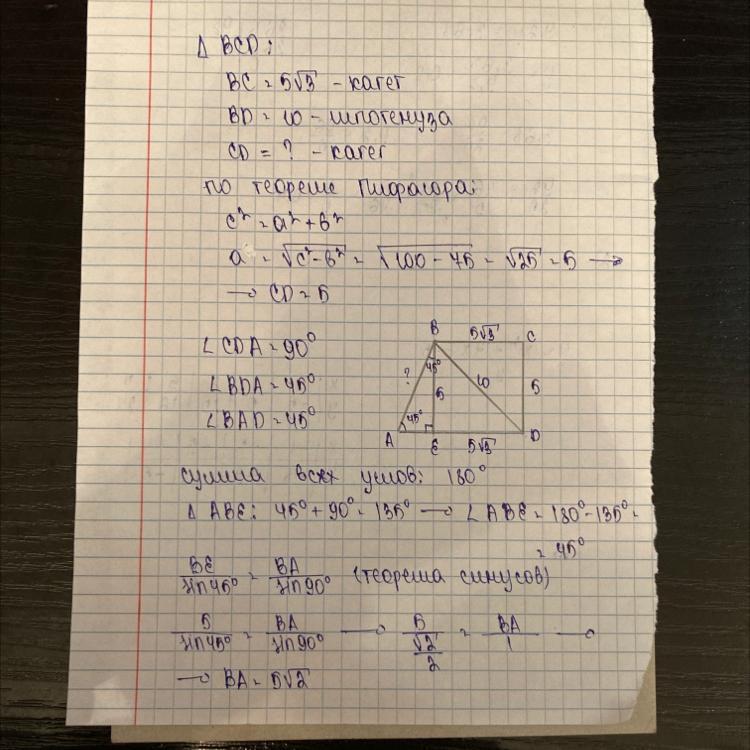 Δ BCD:
BC = 5√3 - катет
BD = 10 - гипотенуза
CD = ? - катет
по теореме Пифагора:
c² = a² + b²
a = √c²-b² = √100-75 = √25 = 5 →
→ CD = 5
∠CDA = 90°
∠BDA = 45°
∠BAD = 45°
B 5√3 C
? 45° 5 10 5
45°
A E 5√3 D
сумма всех углов: 180°
Δ ABE: 45° + 90° = 135° → ∠ABE = 180° - 135° =
= 45°
BE/sin45° = BA/sin90° (теорема синусов)
5/sin45° = BA/sin90° → 5/(√2/2) = BA/1 →
→ BA = 5√2